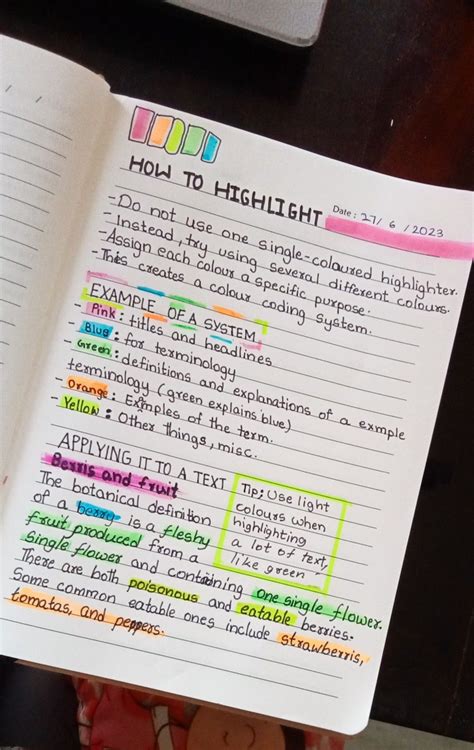 HOW TO HIGHLIGHT
Date: 27/6/2023
-Do not use one single-coloured highlighter.
-Instead, try using several different colours.
-Assign each colour a specific purpose.
-This creates a colour coding system.
EXAMPLE OF A SYSTEM
- Pink: titles and headlines
- Blue: for terminology
- Green: definitions and explanations of a exmple
terminology (green explains blue)
- Orange: Exmples of the term.
- Yellow: Other things, misc.
APPLYING IT TO A TEXT
Berris and fruit
The botanical definition
of a berry is a fleshy
fruit produced from a
single flower and containing one single flower.
There are both poisonous and eatable berries.
Some common eatable ones include strawberris,
tomatas, and peppers.
Tip: Use light
colours when
highlighting
a lot of text,
like green